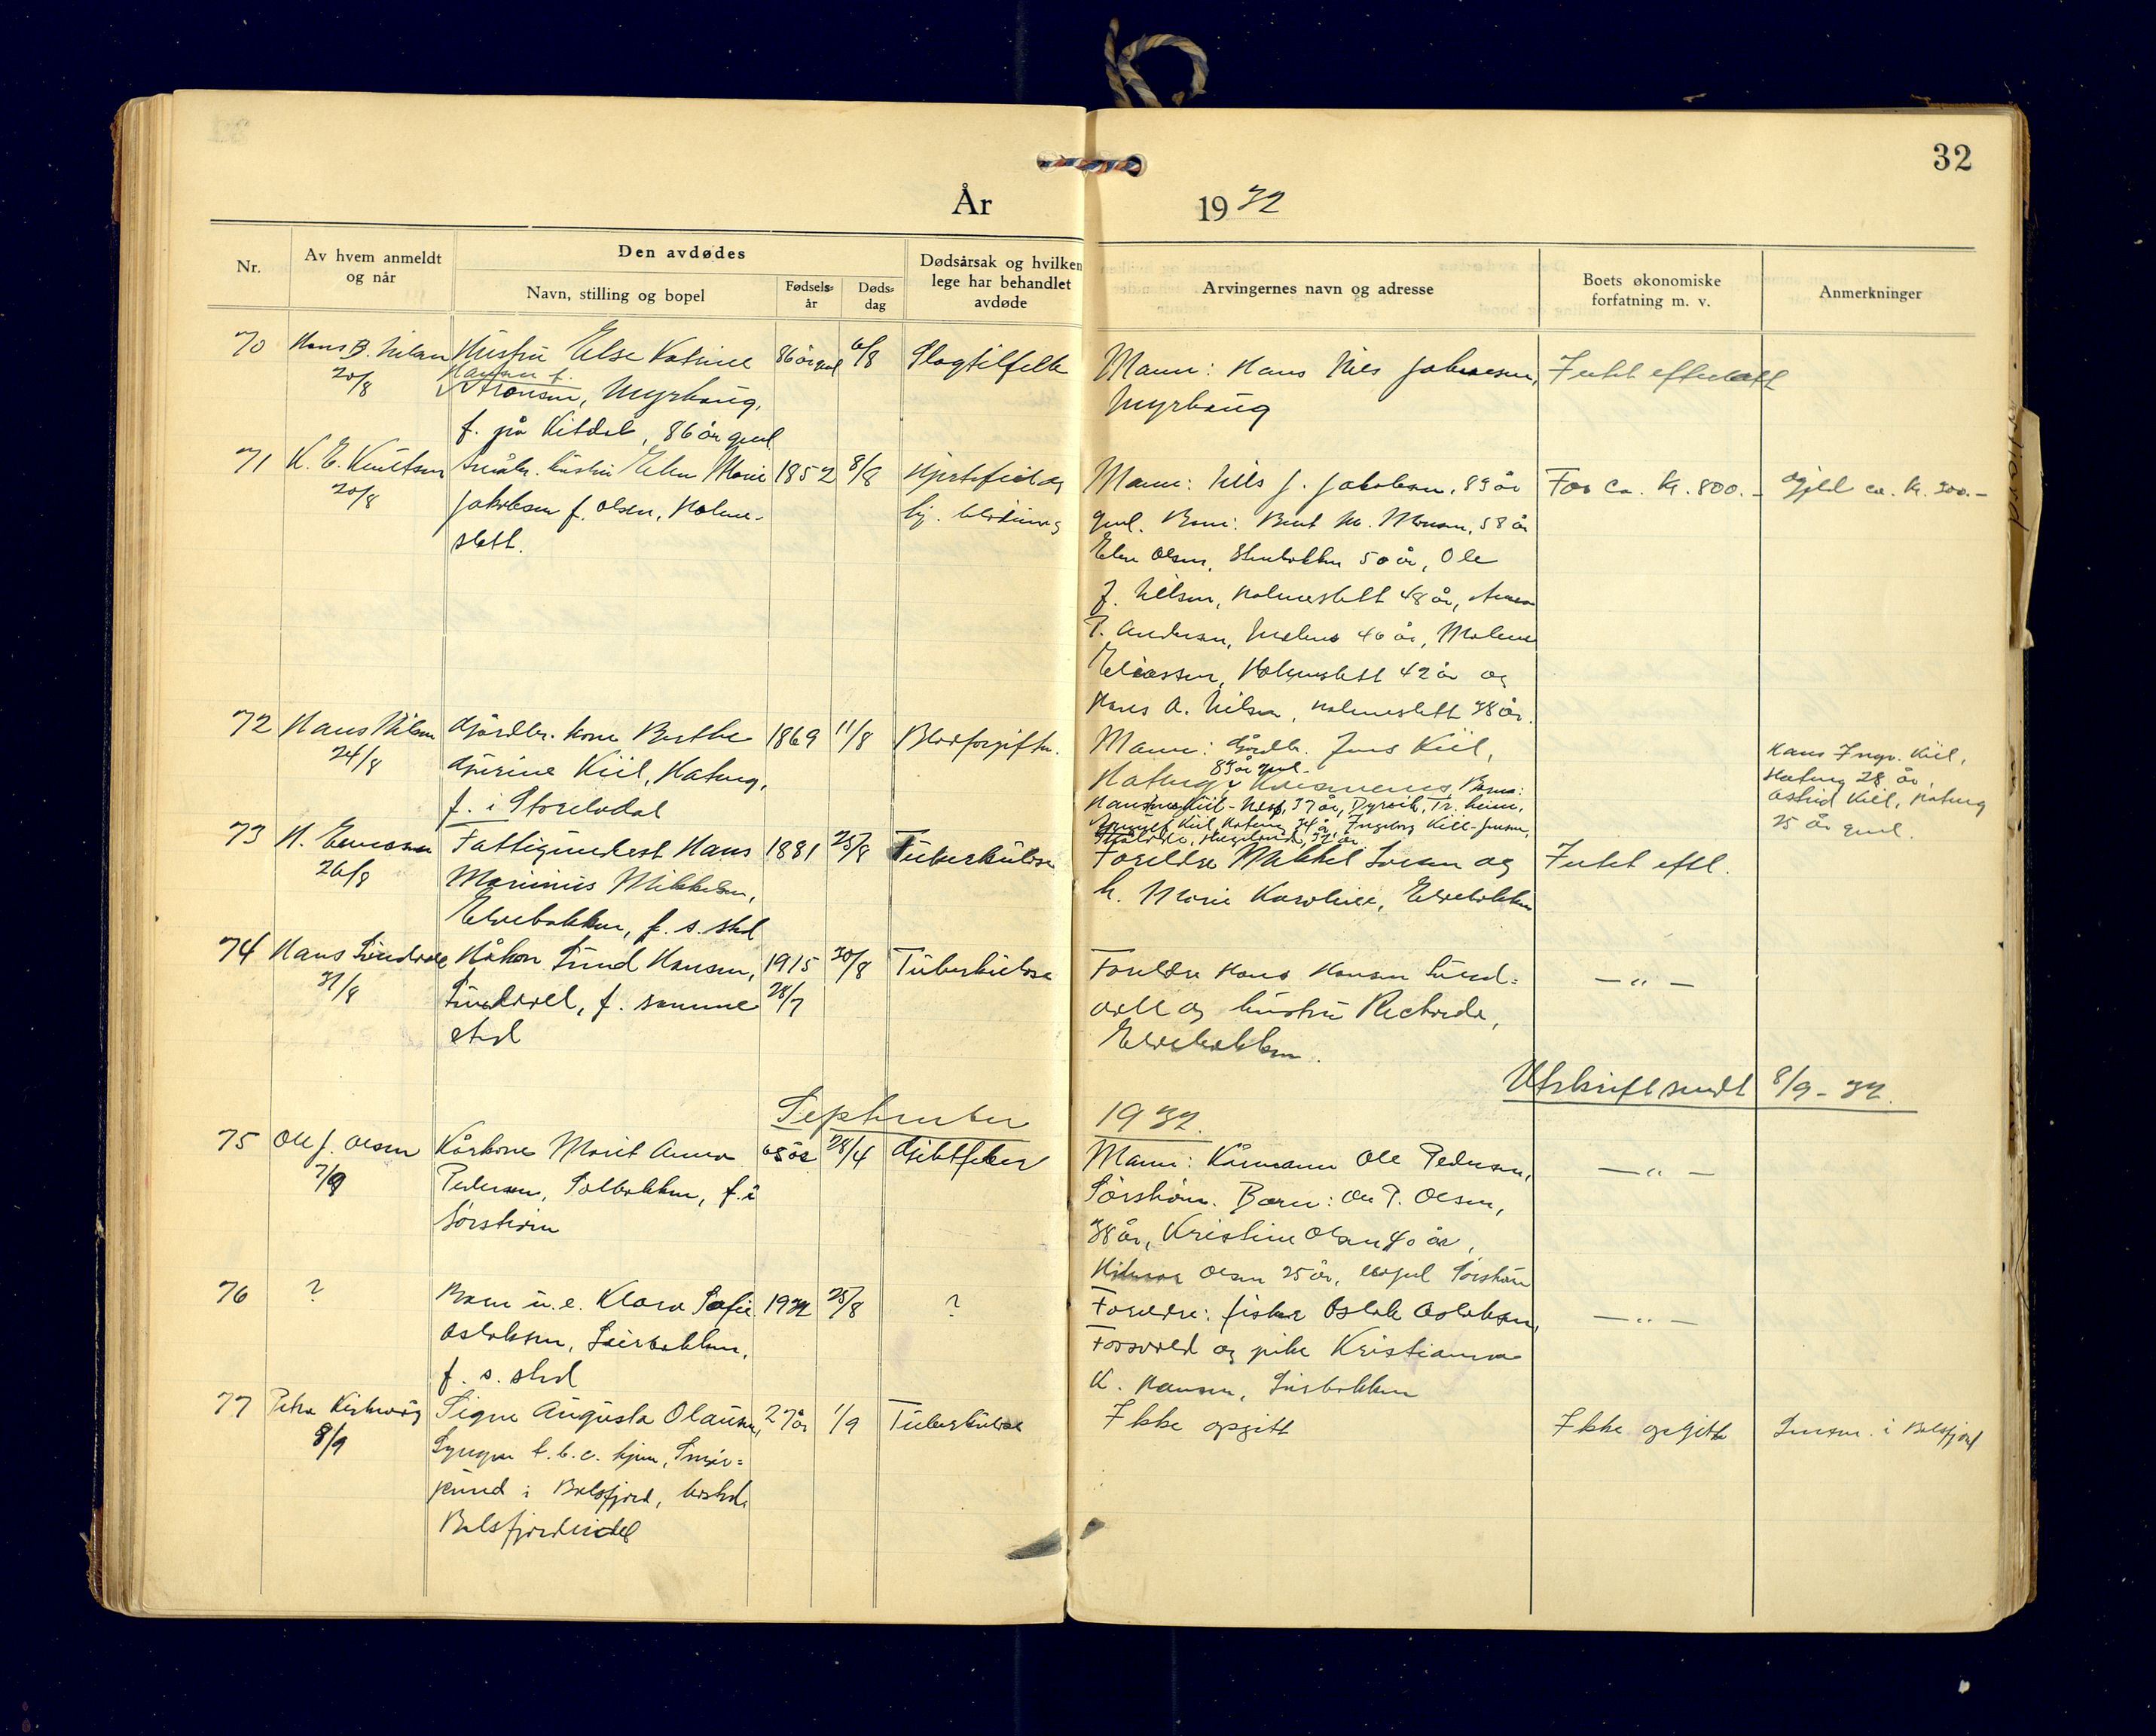 32
År 1932
Nr.
Av hvem anmeldt
og når
Den avdødes
Navn, stilling og bopel
Fødsels-
år
Døds-
dag
Dødsårsak og hvilken
lege har behandlet
avdøde
Arvingernes navn og adresse
Boets økonomiske
forfatning m. v.
Anmerkninger
70
Hans B. Nilsen
20/8
Hustru Else Katrine
Hansen f.
Aronsen, Myrhaug,
f. på Kitdal, 86 år gml
86 år gml
6/8
Slagtilfelle
Mann: Hans Nils Johansen,
Myrhaug
Intet efterlatt
71
K. E. Knutsen
20/8
Småbr. hustru Elen Marie
Jakobsen f. Olsen, Holme-
slett.
1852
8/8
Hjertefeil og
hj. blødning
Mann: Nils J. Jakobsen, 89 år
gml. Barn: Berit M. Monsen, 58 år
Elen Olsen, 50 år, Ole
J. Nilsen, Holmeslett 48 år, Anna
P. Andersen, 46 år, Malene
Eliassen, Holmeslett 42 år og
Hans A. Nilsen, Holmeslett 38 år.
For ca. kr. 800.-
Gjeld ca. kr. 300.-
72
Hans Nilsen
24/8
Gårdbr. kone Berthe
Gjerine Kiil, Hatteng,
f. i Storelvdal
1869
11/8
Blodforgiftn.
Mann: Gårdb. Jens Kiil,
Hatteng Barn:
Kiil-Ness, 37 år, Dyrvik, Tr.heim,
Kiil, Hatteng 34 år, Ingeborg Kiil-Jensen,
32 år
Hans Ingv. Kiil,
Hatteng 28 år,
Astrid Kiil, Hatteng
25 år gml.
73
26/8
Fattigunderst Hans
Marinius Mikkelsen,
Elvebakken, f. s. sted
1881
25/8
Tuberkulose
Foreldre Mikkel Iversen og
h. Marie Karoline, Elvebakken
Intet eftl.
74
Hans Sundvoll
31/8
Håkon Sund Hansen,
Sundvoll, f. samme
sted
1915
28/7
30/8
Tuberkulose
Foreldre Hans Hansen Sund-
voll og hustru Rikarda,
Elvebakken.
— " —
Utskrift sendt 8/9-32.
September 1932.
75
Ole J. Olsen
7/9
Kårkone Marit Anna
Pedersen, Solbakken, f. i
Sørstrøm
68 år
28/4
Giktfeber
Mann: Kårmann Ole Pedersen,
Sørstrøm. Barn: Ole P. Olsen,
38 år, Kristine Olsen 40 år,
Hilmar Olsen 25 år, bopel Sørstrøm
— " —
76
?
Barn u.e. Klara Sofie
Aslaksen, Leirbakken,
f. s. sted
1932
25/8
?
Foreldre: fisker Aslak Aslaksen,
Forsvold og pike Kristianna
K. Hansen, Leirbakken
— " —
77
Petra
8/9
Signe Augusta Olausen,
Lyngen t.b.c. hjem,
i Balsfjord, bosted:
Balsfjordeidet
27 år
1/9
Tuberkulose
Ikke opgitt
Ikke opgitt
i Balsfjord